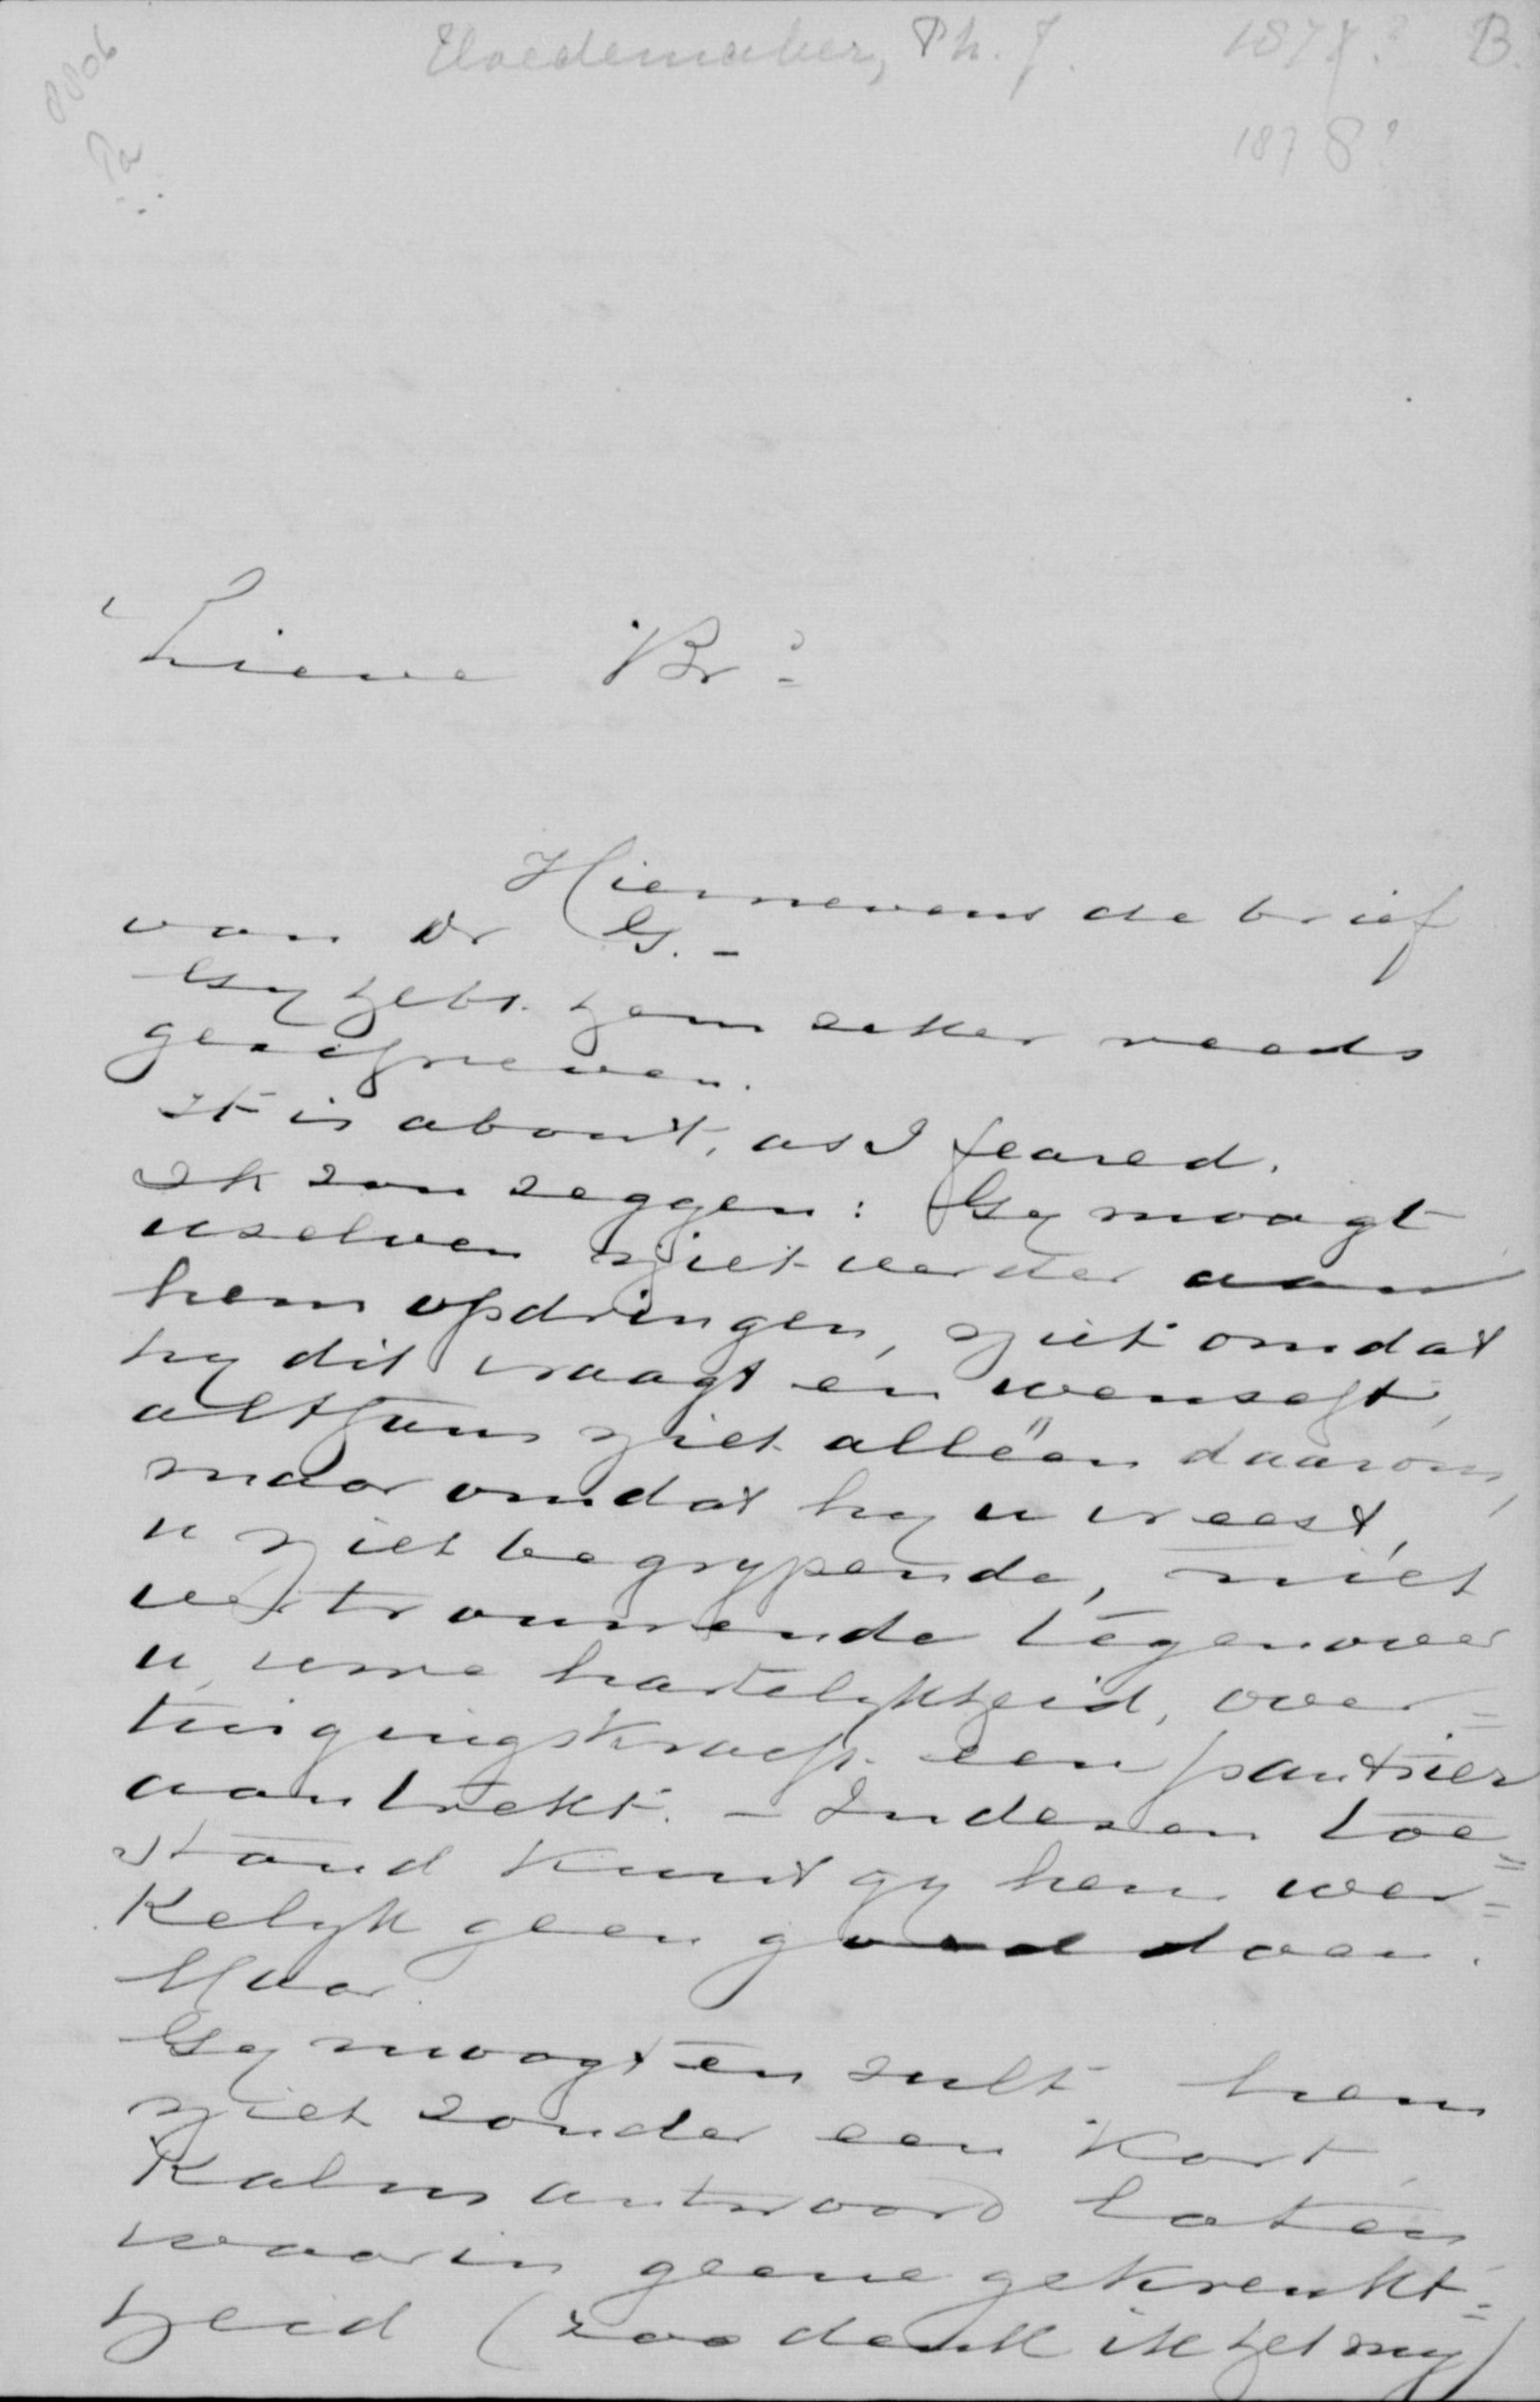 Hoedemaker, Ph. J. 1877? B.
1878?
Lieve Br:
Hiernevens de brief
van Dr G. -
Gy hebt hem zeker reeds
geschreven.
It is about, as I feared.
Ik zou zeggen: Gy moogt
uzelven niet verder aan
hem opdringen, niet omdat
hy dit vraagt en wenscht,
althans niet alléén daarom,
maar omdat hy u vreest,
u niet begrypende, niet
vertrouwende tegenover
u, uwe hartelykheid, over=
tuigingskracht een pantsier
aantrekt. - In dezen toe=
stand kunt gy hem wer=
kelyk geen goed doen.
Maar
Gy moogt en zult hem
niet zonder een kort,
kalm antwoord laten
waarin geene gekrenkt=
heid (zoo denk ik het my)